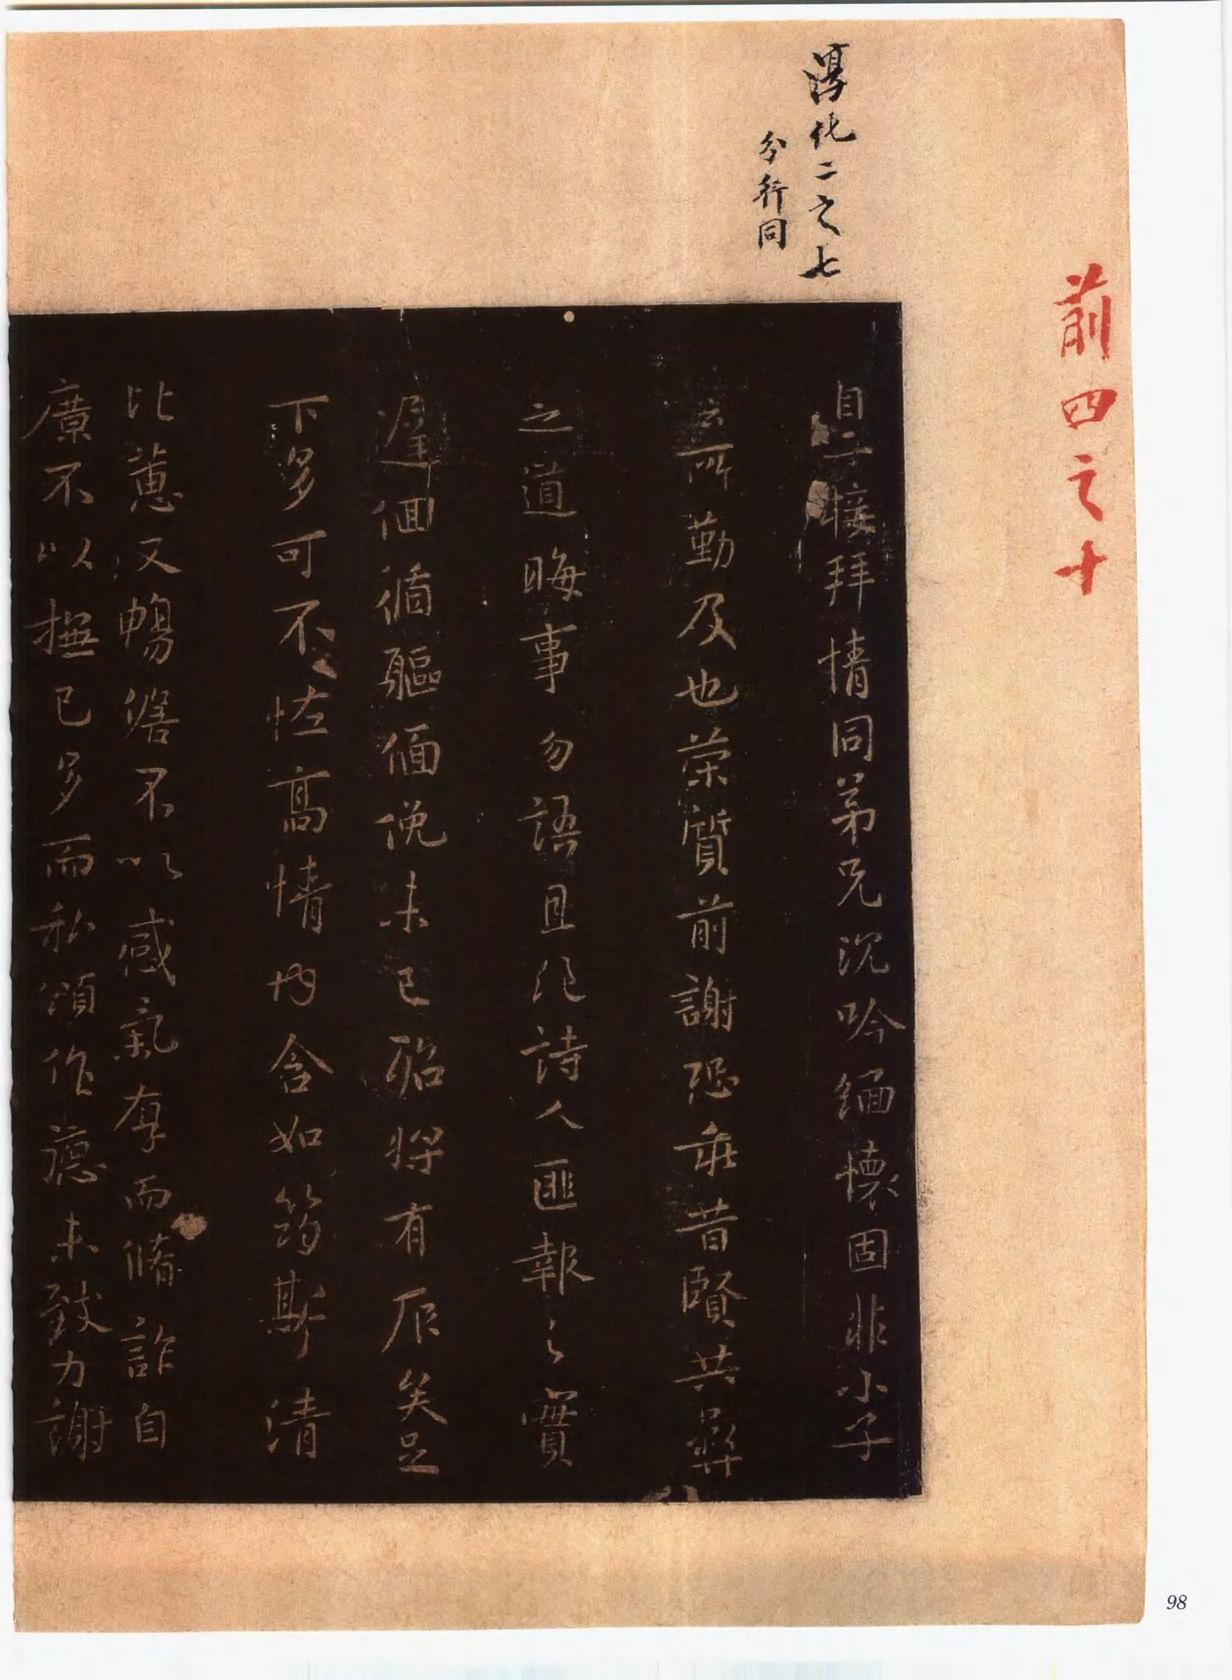 前四之十
淳化二之七
分行同
自二接拜情同弟兄沉吟緬懷固非小子
所勤及也榮質前謝恐乖昔賢共彝
之道晦事勿語且從詩人匪報之實
遲佪循軀偭俛未已殆將有矣足
下多可不怪高情內含如筠斯清
比蕙又暢不以感氣存而脩詐自
廣不以撫已多而私頌作德未致力謝
98